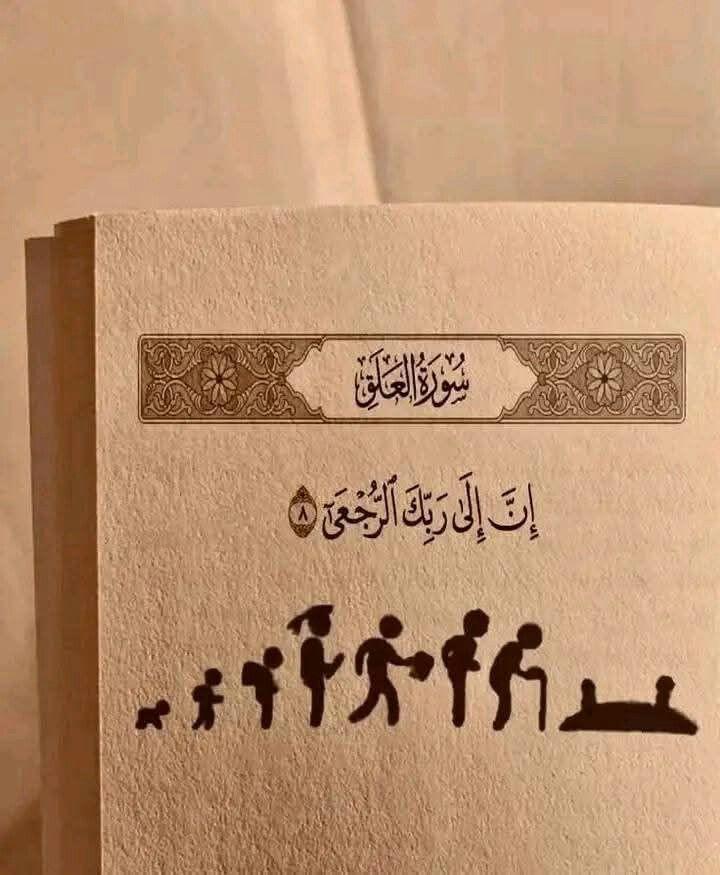 سُورَةُ العَلَقِ
إِنَّ إِلَىٰ رَبِّكَ ٱلرُّجْعَىٰٓ ٨